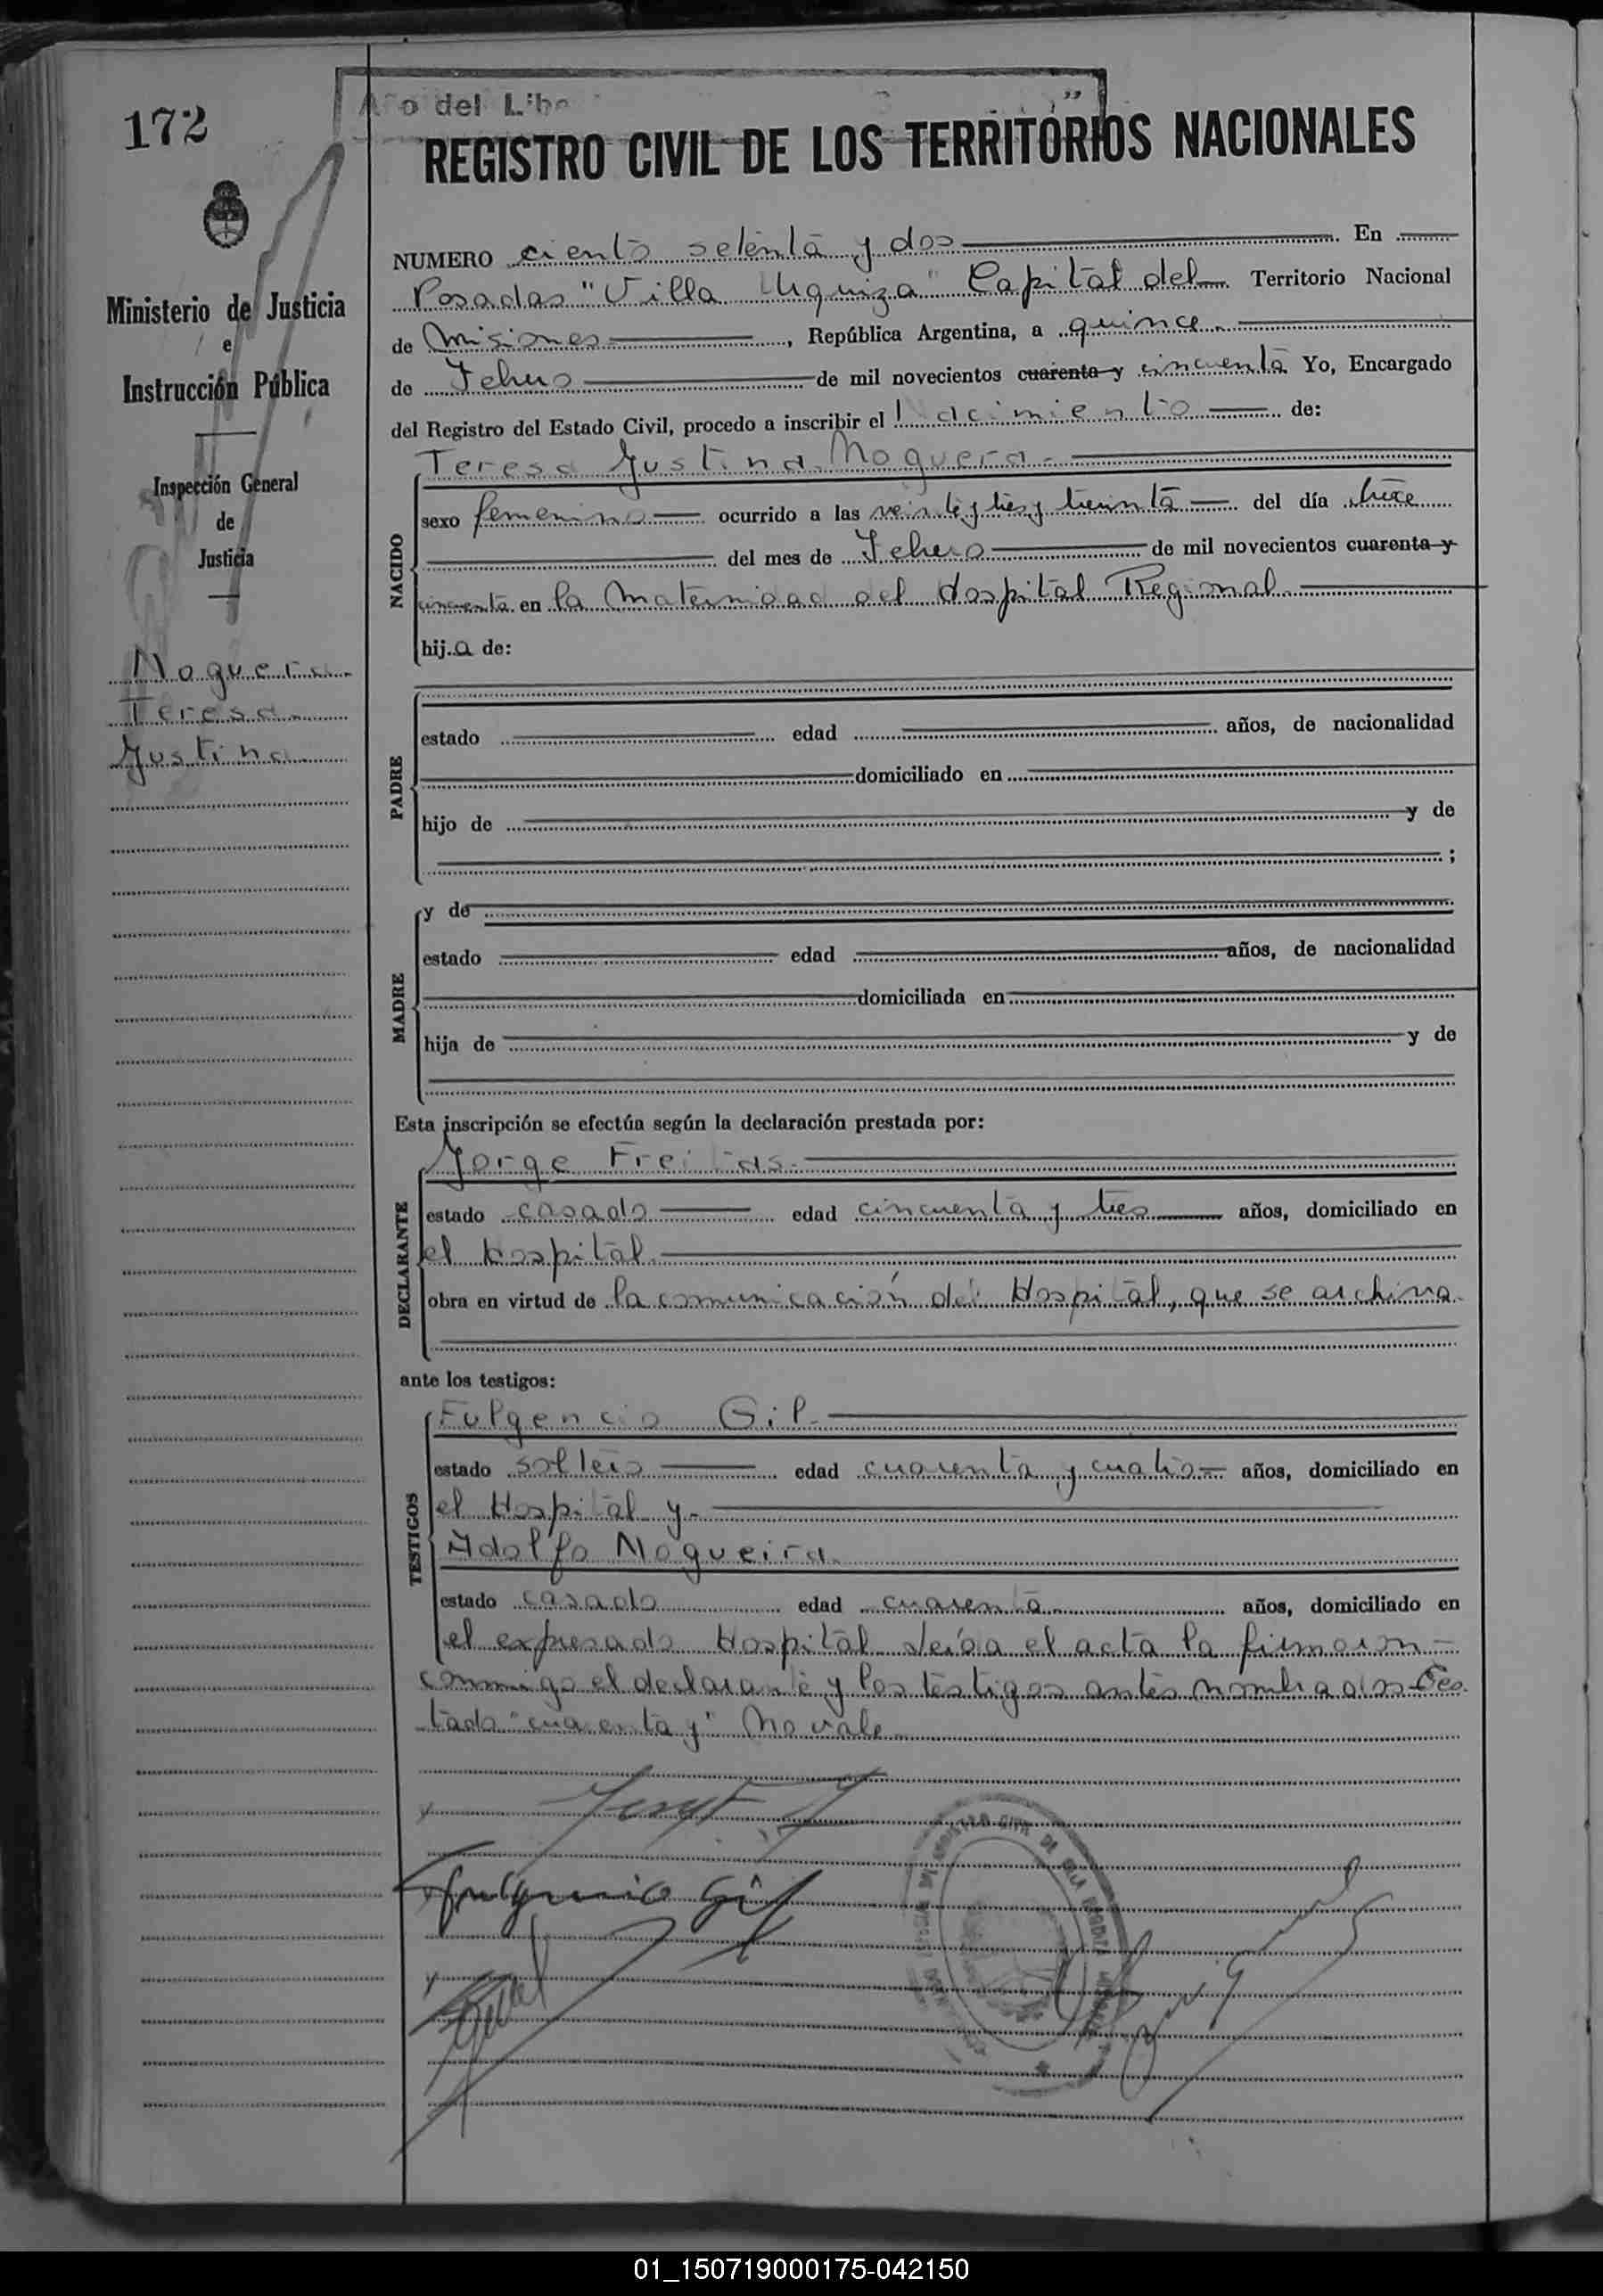 172
REGISTRO CIVIL DE LOS TERRITORIOS NACIONALES
Ministerio de Justicia
e
Instrucción Pública
Inspección General
de
Justicia
Noguera
Teresa
Justina
NUMERO ciento setenta y dos En
Posadas "Villa Urquiza" Capital del Territorio Nacional
de Misiones, República Argentina, a quince
de Febrero de mil novecientos cuarenta y cincuenta Yo, Encargado
del Registro del Estado Civil, procedo a inscribir el Nacimiento de:
NACIDO
Teresa Justina Noguera.
sexo femenino ocurrido a las veinte y tres y treinta del día trece
del mes de Febrero de mil novecientos cuarenta y
cincuenta en la Maternidad del Hospital Regional.
hija de:
PADRE
estado edad años, de nacionalidad
domiciliado en
hijo de y de
;
MADRE
y de
estado edad años, de nacionalidad
domiciliada en
hija de y de
Esta inscripción se efectúa según la declaración prestada por:
DECLARANTE
Jorge Freitas.
estado casado edad cincuenta y tres años, domiciliado en
el hospital.
obra en virtud de la comunicación del Hospital, que se archiva.
ante los testigos:
TESTIGOS
Fulgencio Gil.
estado soltero edad cuarenta y cuatro años, domiciliado en
el Hospital y
Adolfo Nogueira.
estado casado edad cuarenta años, domiciliado en
el expresado Hospital Leída el acta la firmaron
conmigo el declarante y los testigos antes nombrados Tes
tado "cuarenta y" No vale
Fulgencio Gil
01_150719000175-042150